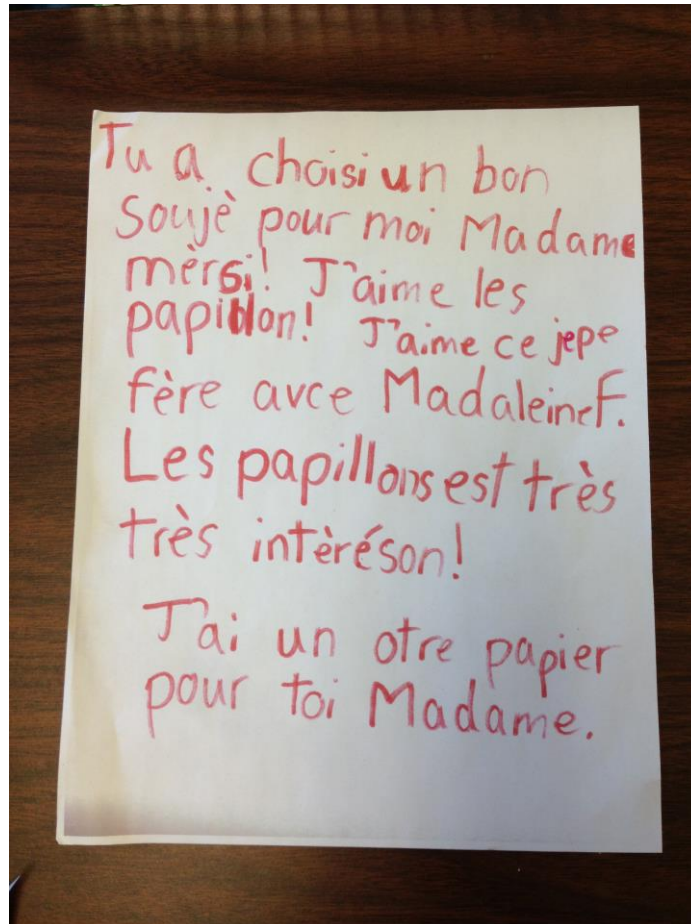 Tu a choisi un bon
Soujè pour moi Madame
mèrsi! J'aime les
papillon! J'aime ce jepe
fère avce Madaleine F.
Les papillons est très
très intèréson!
J'ai un otre papier
pour toi Madame.